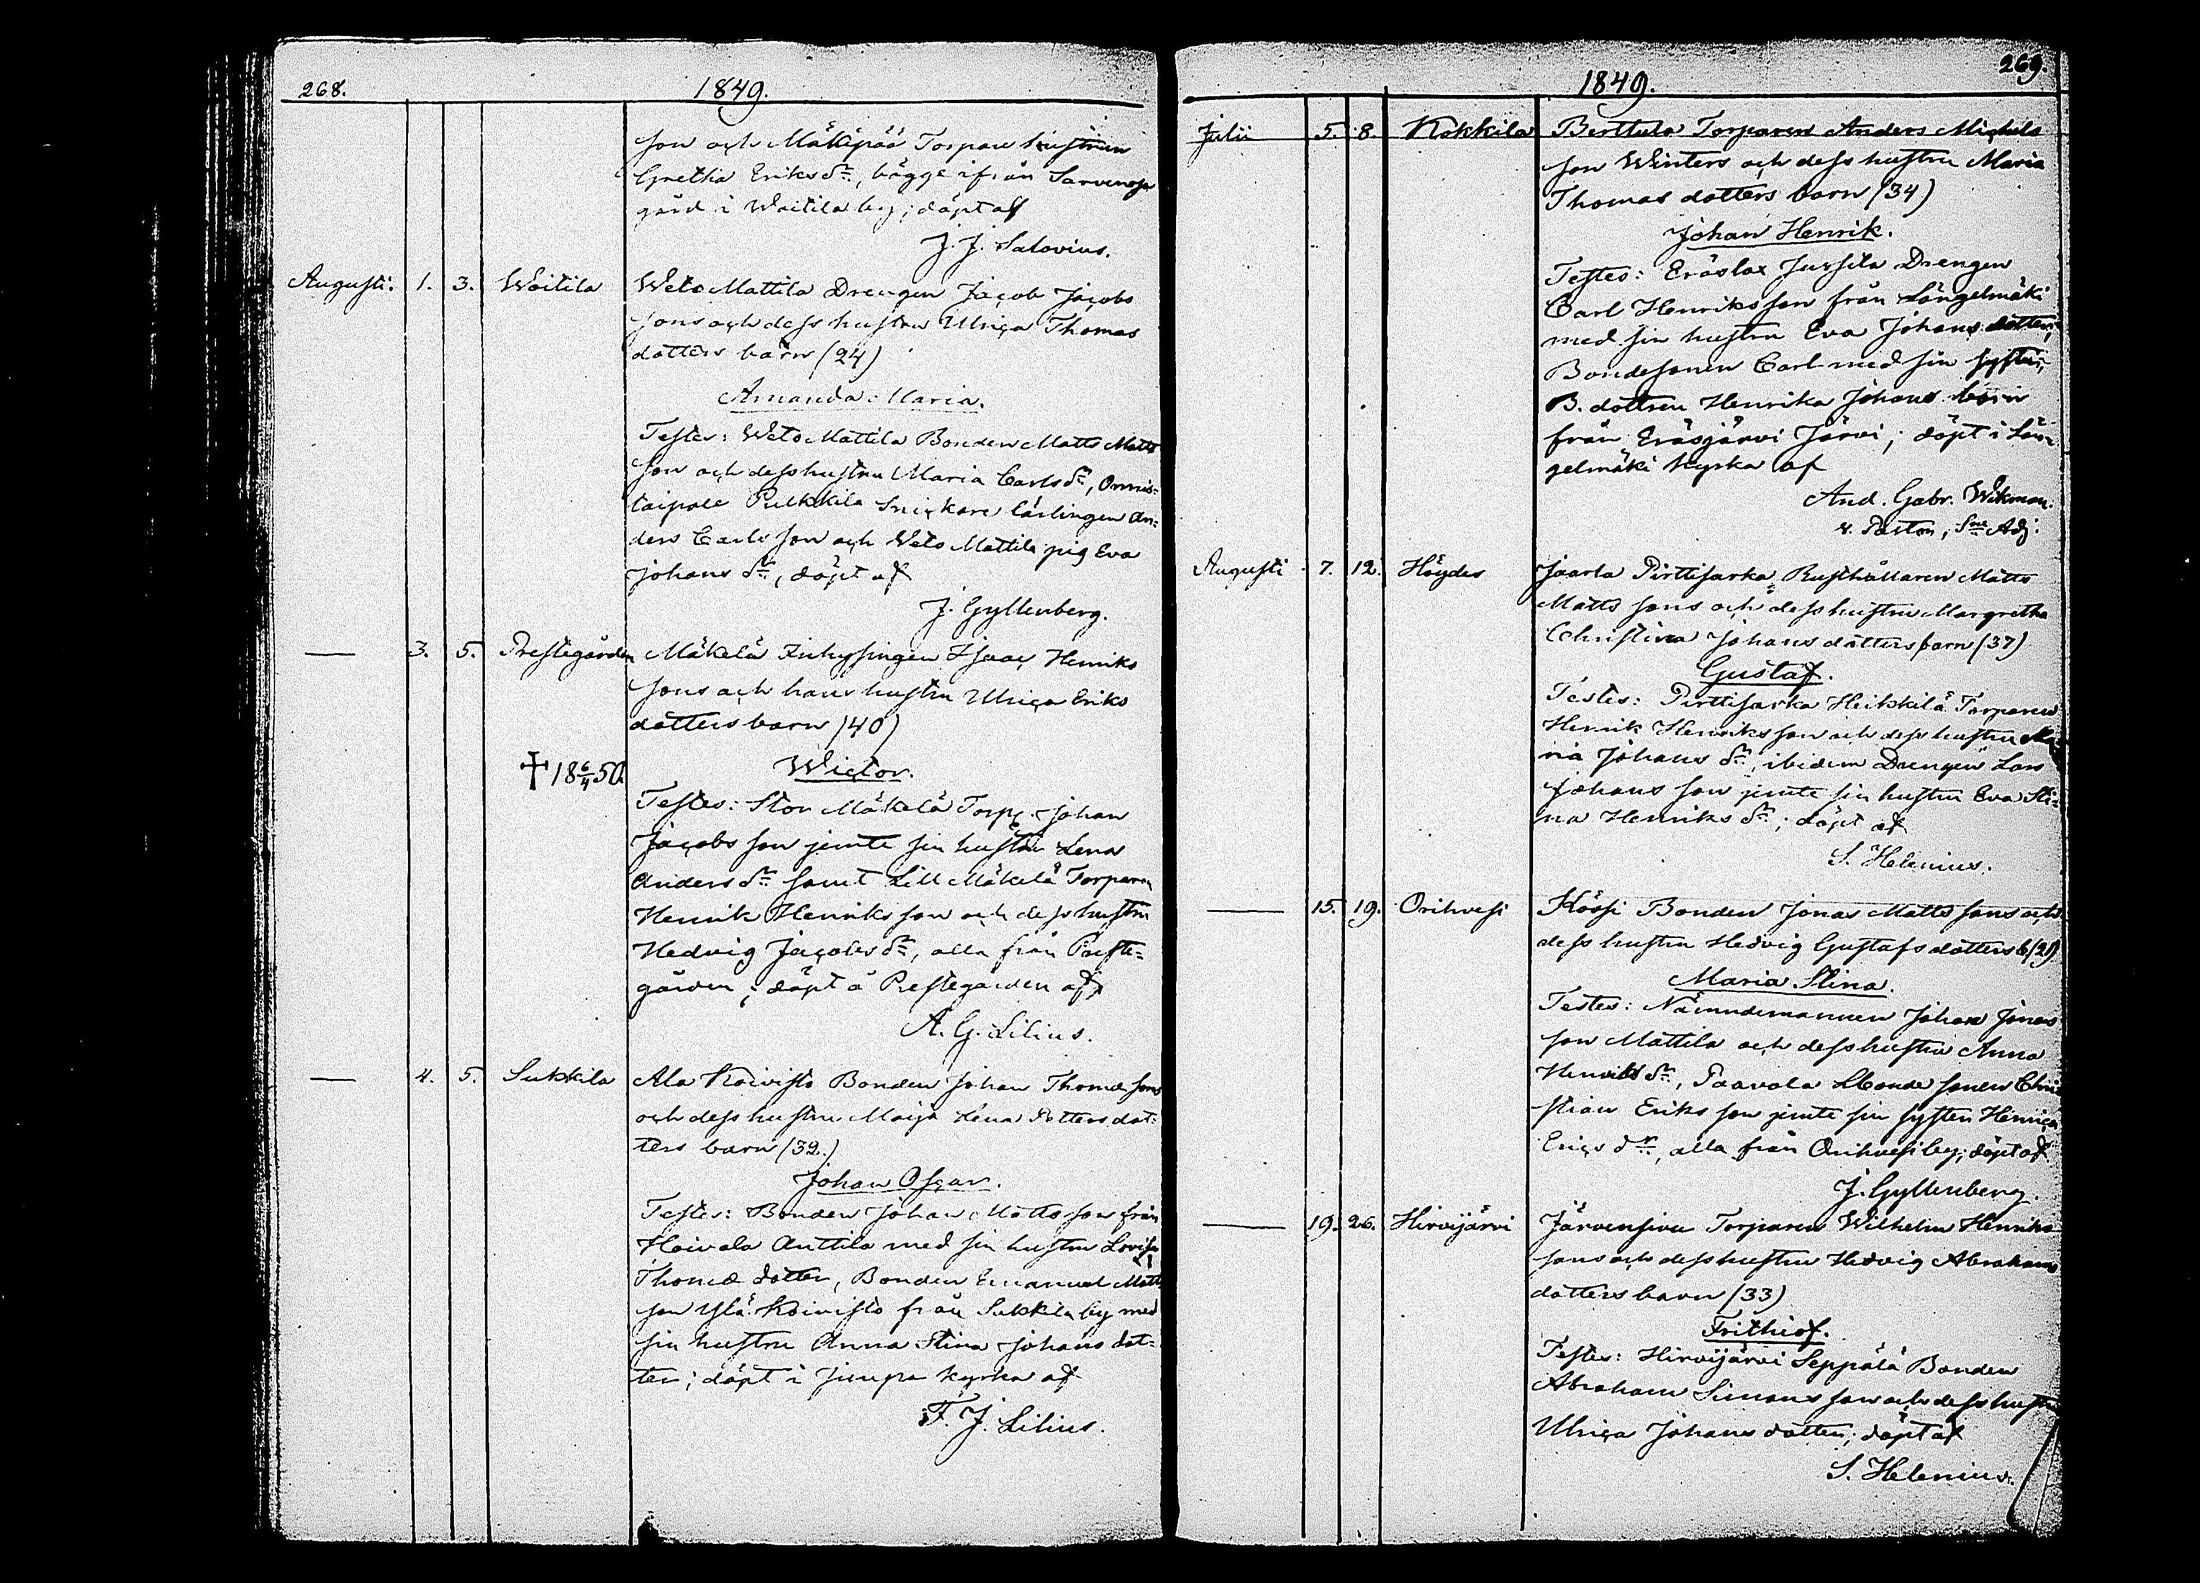 268.
1849.
son och Mäkipää Torpare hustrun
Gretha Eriks dr, bägge ifrån Sarvenoja
gård i Woitila by; döpt af
J. J. Salovius.
Augusti. 1. 3. Woitila Weto Mattila Drengen Jacob Jacobs
sons och dess hustru Ulrica Thomas
dotters barn (24)
Amanda Maria.
Testes: Weto Mattila Bonden Matts Matts
son och dess hustru Maria Carls dr, Onnis-
taipale Pulkkila Snickare lärlingen An-
ders Carls son och Weto Mattila pig Eva
Johans dr, döpt af
J. Gyllenberg.
— 3. 5. Prestegården Mäkelä Inhysingen Isaac Henriks
sons och hans hustru Ulrica Eriks
dotters barn (40)
† 18 6/4 50. Wictor.
Testes: Stor Mäkelä Torp. Johan
Jacobs son jemte sin hustru Lena
Anders dr samt Lill Mäkelä Torparen
Henrik Henriks son och dess hustru
Hedvig Jacobs dr, alla från Preste-
gården; döpt å Prestegården af
A. G. Lilius.
— 4. 5. Sukkila Ala Koivisto Bonden Johan Thomæ sons
och dess hustru Maja Lena Petters dot-
ters barn (32.)
Johan Oscar.
Testes: Bonden Johan Matts son från
Hoivala Anttila med sin hustru Lovisa
Thomæ dotter, Bonden Emanuel Matts
son Ylä Koivisto från Sukkila by med
sin hustru Anna Stina Johans dot-
ter; döpt i kyrka af
F. J. Lilius.
269.
1849.
Julii 5. 8. Kokkila Berttula Torparen Anders Michels
son Winters och dess hustru Maria
Thomas dotters barn (34)
Johan Henrik.
Testes: Eräslax Jussila Drengen
Carl Henriks son från Längelmäki
med sin hustru Eva Johans dotter,
Bondesonen Carl med sin syster,
B. dottren Henrika Johans barn
från Eräsjärvi Järvi; döpt i Län-
gelmäki kyrka af
And. Gabr. Wikman.
v. Pastor, Sne Adj.
Augusti 7. 12. Höydes Jaarla Pirttisarka Rusthållaren Matts
Matts sons och dess hustru Margretha
Christina Johans dotters barn (37)
Gustaf.
Testes: Pirttisarka Heikkilä Torparen
Henrik Henriks son och dess hustru Ma-
ria Johans dr, ibidem Drengen Lars
Johans son jemte sin hustru Eva Sti-
na Henriks dr; döpt af
S. Helenius.
— 15. 19. Orihvesi Köösi Bonden Jonas Matts sons och
dess hustru Hedvig Gustafs dotters b. (21)
Maria Stina.
Testes: Nämndemannen Johan Jonas
son Mattila och dess hustru Anna
Henriks dr, Paavola Bonde sonen Chri
stian Eriks son jemte sin syster Henrica
Erics dr, alla från Orihvesi by; döpt af
J. Gyllenberg.
— 19. 26. Hirvijärvi Järvensivu Torparen Wilhelm Henriks
sons och dess hustru Hedvig Abrahams
dotters barn (33)
Frithiof.
Testes: Hirvijärvi Seppälä Bonden
Abraham Simons son och dess hustru
Ulrica Johans dotter; döpt af
S. Helenius.